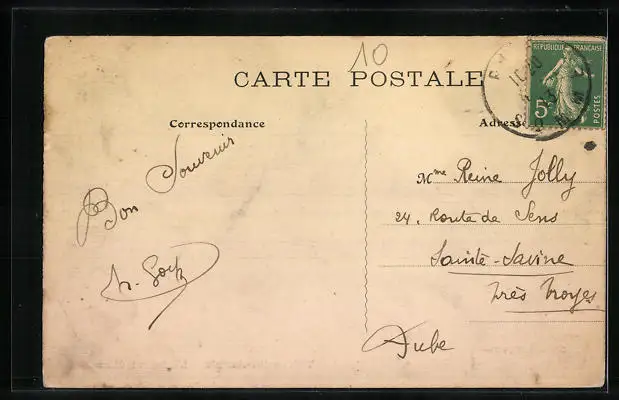 10
CARTE POSTALE
REPUBLIQUE FRANÇAISE
5c
POSTES
Correspondance
Adresse
Bon Souvenir
Mme Reine Jolly
24, Route de Sens
Sainte-Savine
près Troyes
Aube